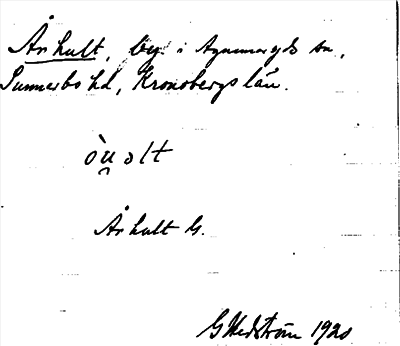 Århult, by i Agunnaryds sn,
Sunnerbo hd, Kronobergs län.
òu̯olt
Århult G.
G Hedström 1920